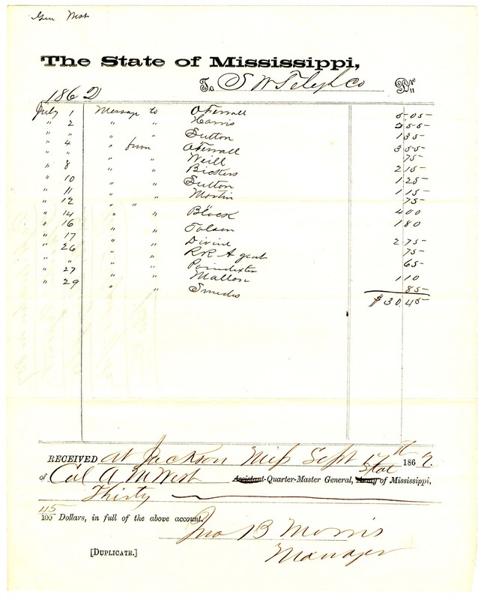 Genl West
The State of Mississippi,
To S W Telegh Co Dr
1862
July 1 Message to O'Ferrall 5 05
" 2 " " Harris 2 55
" " " " Sutton 1 35
" 4 " from O'Ferrall 3 55
" " " " Weill 75
" 8 " " Bickers 2 15
" 10 " " Sutton 1 25
" 11 " " Martin 1 15
" 12 " " " 75
" 14 " " Block 4 00
" 16 " " Tolson 1 80
" 17 " "
" 26 " " Divine 2 75
" " " " RR Agent 75
" 27 " " Poindexter 65
" 29 " " Mallon 1 10
" " Smedes 85
$30.45
RECEIVED at Jackson Miss Sept 17th 1862.
of Col A M West Assistant-Quarter-Master General, Army State of Mississippi,
Thirty
45/100 Dollars, in full of the above account.
Jno B Morris
[DUPLICATE.] Manager